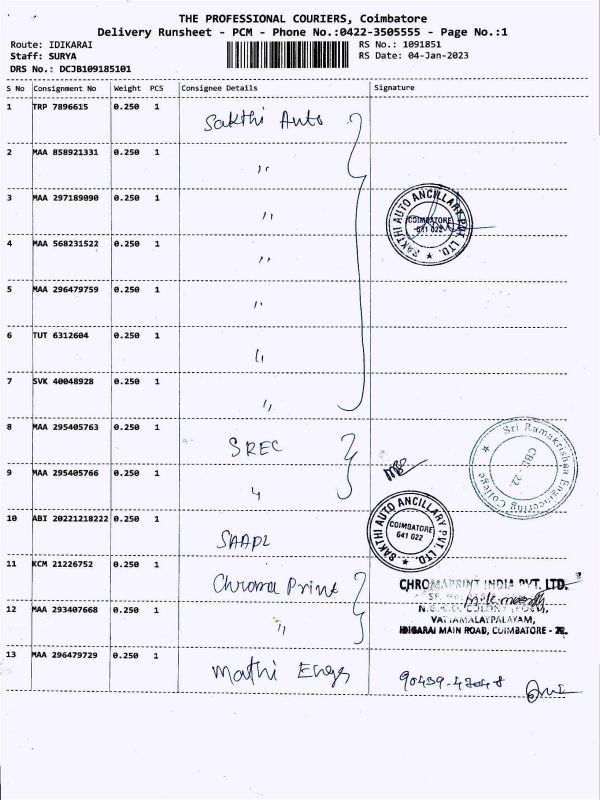 THE PROFESSIONAL COURIERS, Coimbatore
Delivery Runsheet - PCM - Phone No.:0422-3505555 - Page No.:1
Route: IDIKARAI RS No.: 1091851
Staff: SURYA RS Date: 04-Jan-2023
DRS No.: DCJB109185101
S No Consignment No Weight PCS Consignee Details Signature
1 TRP 7896615 0.250 1 Sakthi Auto
2 MAA 858921331 0.250 1 ,,
3 MAA 297189090 0.250 1 ,,
SAKTHI AUTO ANCILLARY PVT. LTD. ★
COIMBATORE
641 022
4 MAA 568231522 0.250 1 ,,
5 MAA 296479759 0.250 1 ,,
6 TUT 6312604 0.250 1 ,,
7 SVK 40048928 0.250 1 ,,
8 MAA 295405763 0.250 1 SREC
Sri Ramakrishna Engineering College ★
CBE - 22
9 MAA 295405766 0.250 1 ,,
10 ABI 20221218222 0.250 1 SAAPL
SAKTHI AUTO ANCILLARY PVT. LTD. ★
COIMBATORE
641 022
11 KCM 21226752 0.250 1 Chroma Print
CHROMAPRINT INDIA PVT. LTD.
12 MAA 293407668 0.250 1 ,,
COLONY
VATTAMALAIPALAYAM,
IDIGARAI MAIN ROAD, COIMBATORE - 22.
13 MAA 296479729 0.250 1 Mathi Engs